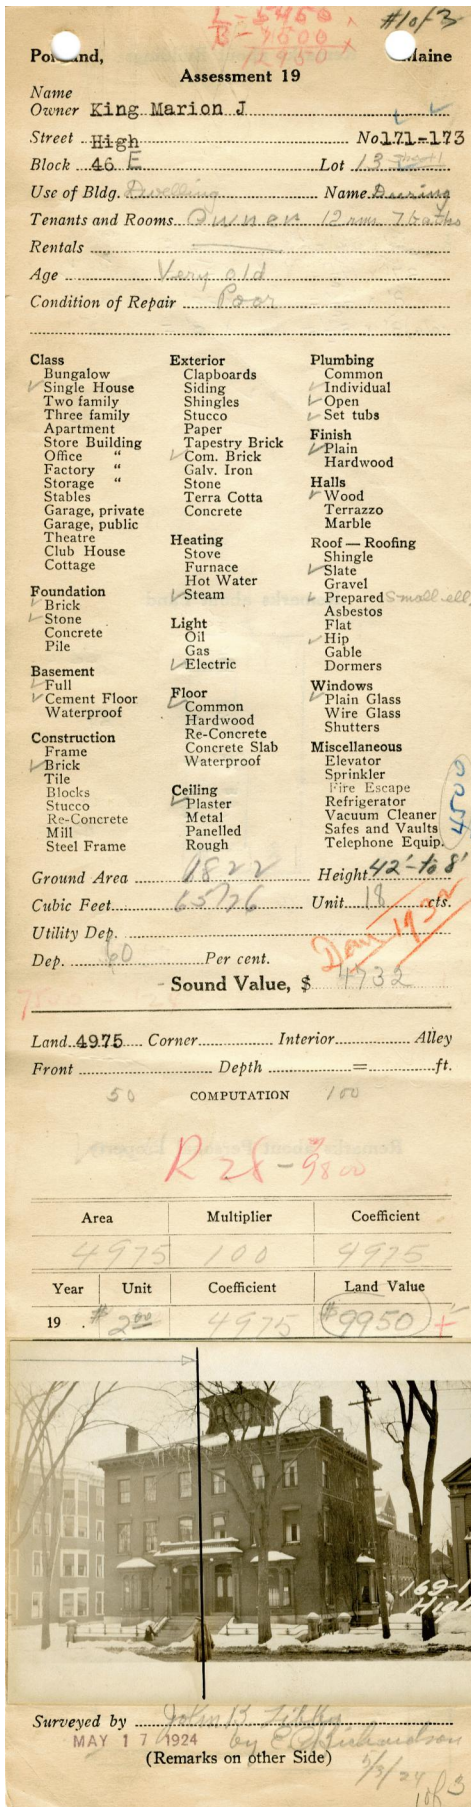 L - 5450
B - 7500
12950
#1 of 3
Portland, Maine
Assessment 19
Name
Owner King Marion J
Street High No 171-173
Block 46 E Lot 13
Use of Bldg. Dwelling Name Deering
Tenants and Rooms Owner 12 rms 7 baths
Rentals
Age Very old
Condition of Repair Poor
Class
Bungalow
✓ Single House
Two family
Three family
Apartment
Store Building
Office “
Factory “
Storage “
Stables
Garage, private
Garage, public
Theatre
Club House
Cottage
Foundation
✓ Brick
✓ Stone
Concrete
Pile
Basement
✓ Full
✓ Cement Floor
Waterproof
Construction
Frame
✓ Brick
Tile
Blocks
Stucco
Re-Concrete
Mill
Steel Frame
Exterior
Clapboards
Siding
Shingles
Stucco
Paper
Tapestry Brick
✓ Com. Brick
Galv. Iron
Stone
Terra Cotta
Concrete
Heating
Stove
Furnace
Hot Water
✓ Steam
Light
Oil
Gas
✓ Electric
Floor
✓ Common
Hardwood
Re-Concrete
Concrete Slab
Waterproof
Ceiling
✓ Plaster
Metal
Panelled
Rough
Plumbing
Common
✓ Individual
✓ Open
✓ Set tubs
Finish
✓ Plain
Hardwood
Halls
✓ Wood
Terrazzo
Marble
Roof — Roofing
Shingle
✓ Slate
Gravel
✓ Prepared Small ell
Asbestos
Flat
✓ Hip
Gable
Dormers
Windows
✓ Plain Glass
Wire Glass
Shutters
Miscellaneous
Elevator
Sprinkler
Fire Escape
Refrigerator
Vacuum Cleaner
Safes and Vaults
Telephone Equip.
4500
Ground Area 1822 Height 42'-to 8'
Cubic Feet 65726 Unit 18 cts.
Utility Dep.
Dep. 60 Per cent.
Sound Value, $ 4732
Land 4975 Corner Interior Alley
Front Depth = ft.
50 COMPUTATION 100
R 28 - 9800
Area Multiplier Coefficient
4975 100 4975
Year Unit Coefficient Land Value
19 . $2.00 4975 $9950 +
169-1
High
Surveyed by John B. Libby
MAY 17 1924 by E C Richardson
(Remarks on other Side)
5/3/24
1 of 3